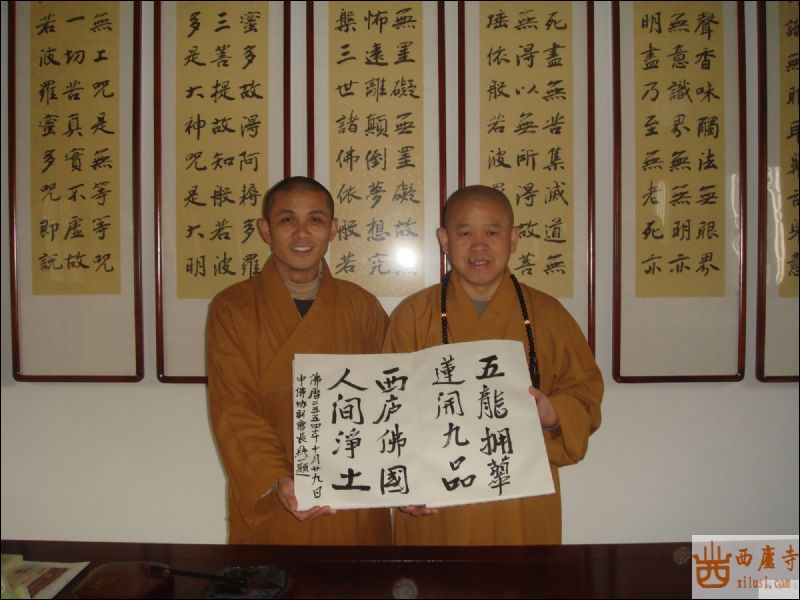 識無眼耳鼻舌身意
聲香味觸法無眼界
無意識界無無明亦
明盡乃至無老死亦
死盡無苦集滅道無
無得以無所得故菩
埵依般若波羅
無罣礙無罣礙故無
怖遠離顛倒夢想究
槃三世諸佛依般若
蜜多故得阿耨多羅
三菩提故知般若波
多是大神咒是大明
無上咒是無等等咒
一切苦真實不虛故
若波羅蜜多咒即說
五龍拥
蓮開九品
西庐佛國
人间淨土
佛曆二五五四年十月廿九日
中佛协副會長
西廬寺
xilusi.com